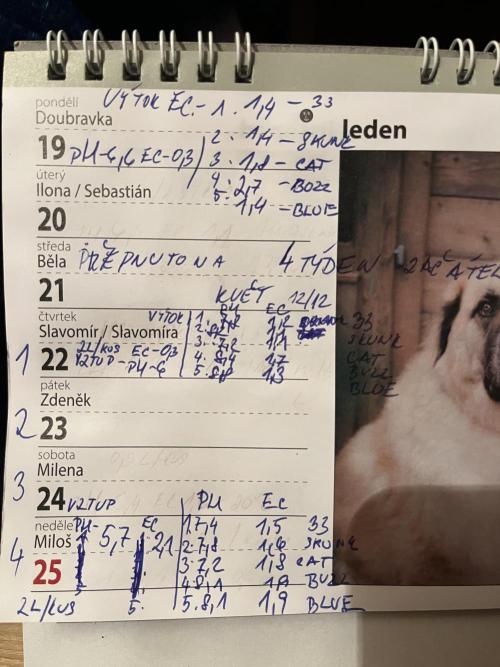 pondělí
Doubravka
VÝTOK EC - 1. 1,4 - 33
leden
19 pH-6,6 EC-0,3
2. 1,4 - SKUNK
3. 1,8 - CAT
úterý
Ilona / Sebastián
4. 2,7 - BUZZ
5. 1,4 - BLUE
20
středa
Běla PŘEPNUTO NA 4 TÝDEN ZAČÁTEK
21
KVĚT 12/12
čtvrtek
Slavomír / Slavomíra
VÝTOK
PH EC
1. 1,2 33
2. 1,1 SKUNK
3. 7,2 CAT
4. 1,7 BUZZ
5. 1,3 BLUE
1 22 2L/KUS EC-0,3
VZTUP-PH-6
pátek
Zdeněk
2 23
sobota
Milena
3 24 VZTUP
PH EC
neděle PH- EC
Miloš 5,7 2,1
1. 7,4 1,5 33
2. 7,8 1,6 SKUNK
3. 7,2 1,8 CAT
4. 8,1 BUZZ
4 25
2L/KUS 5.
5. 8,1 1,9 BLUE